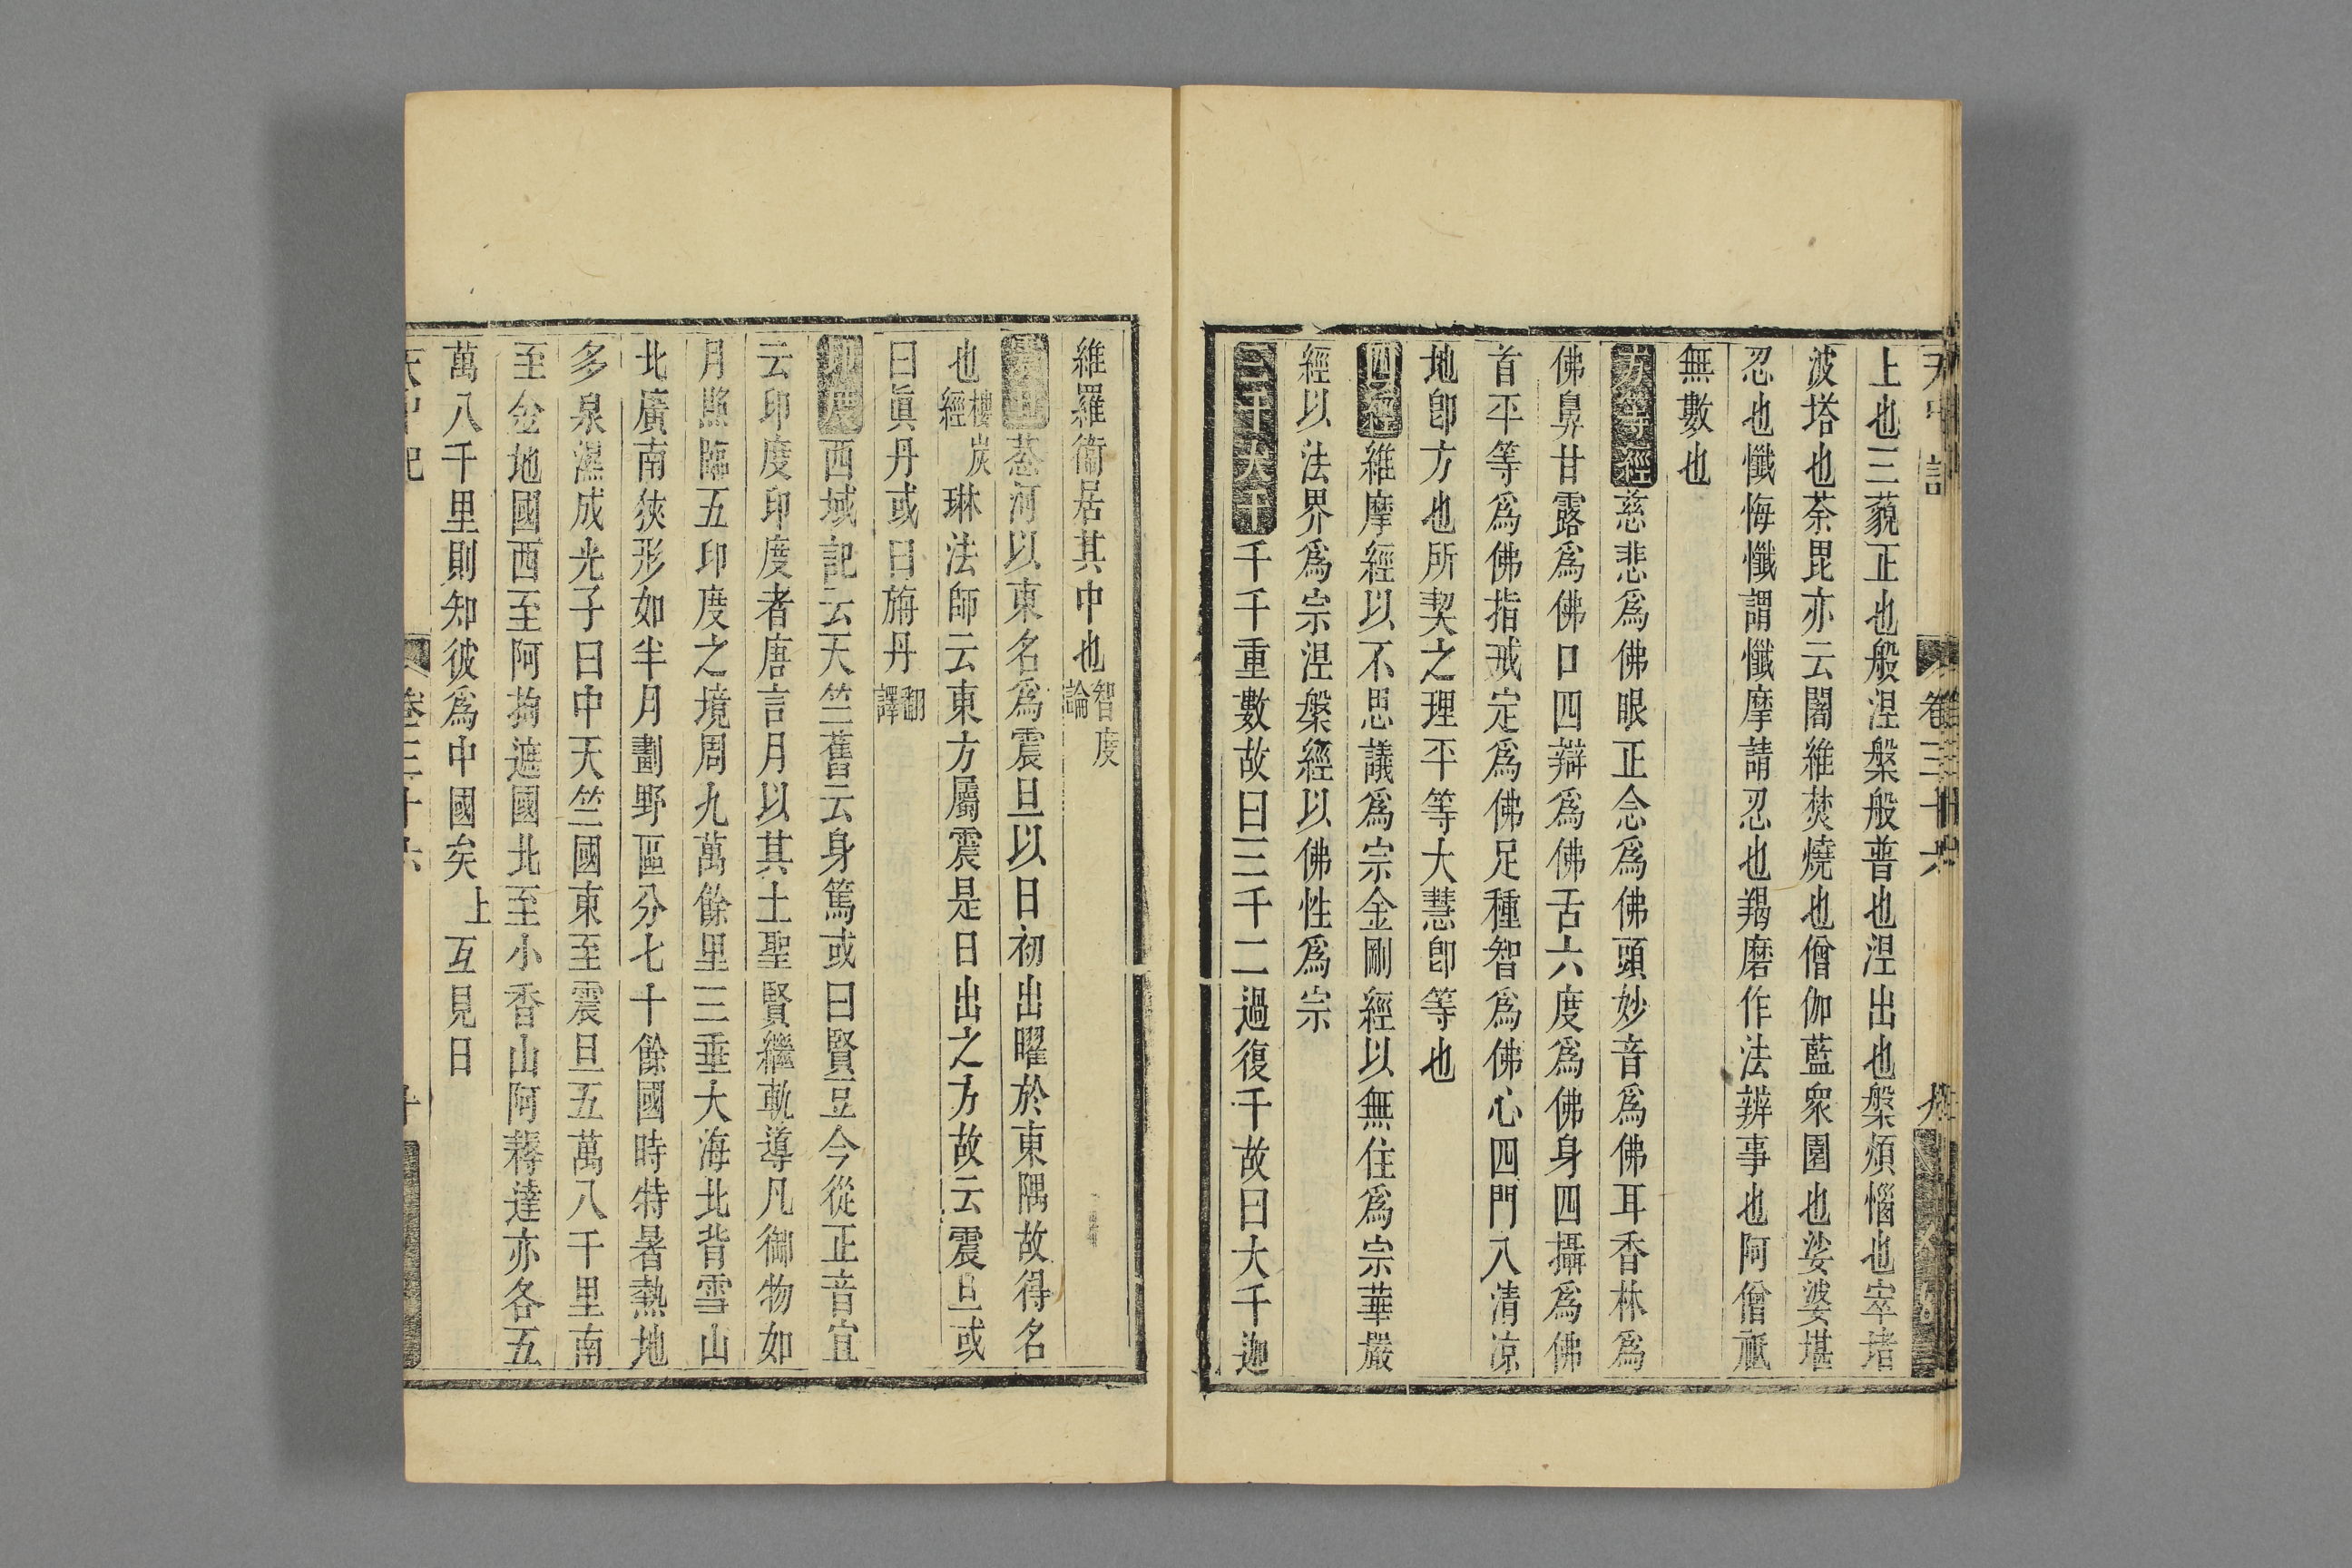 天中記 卷三十六 九
上也三藐正也般涅槃般普也涅出也槃煩惱也窣堵
波塔也荼毘亦云闍維焚燒也僧伽藍衆園也娑婆堪
忍也懺悔懺謂懺摩請忍也羯磨作法辨事也阿僧祇
無數也
方等經慈悲爲佛眼正念爲佛頭妙音爲佛耳香林爲
佛鼻甘露爲佛口四辯爲佛舌六度爲佛身四攝爲佛
首平等爲佛指戒定爲佛足種智爲佛心四門入清凉
地卽方也所契之理平等大慧卽等也
四經維摩經以不思議爲宗金剛經以無住爲宗華嚴
經以法界爲宗涅槃經以佛性爲宗
三千大千千千重數故曰三千二過復千故曰大千迦
維羅衞居其中也智度論
震旦葱河以東名爲震旦以日初出曜於東隅故得名
也樓炭經琳法師云東方屬震是日出之方故云震旦或
曰眞丹或曰旃丹翻譯
印度西域記云天竺舊云身篤或曰賢豆今從正音宜
云印度印度者唐言月以其土聖賢繼軌導凡御物如
月照臨五印度之境周九萬餘里三垂大海北背雪山
北廣南狹形如半月劃野區分七十餘國時特暑熱地
多泉濕成光子曰中天竺國東至震旦五萬八千里南
至金地國西至阿拘遮國北至小香山阿耨達亦各五
萬八千里則知彼爲中國矣上互見日
天中記 卷三十六 十